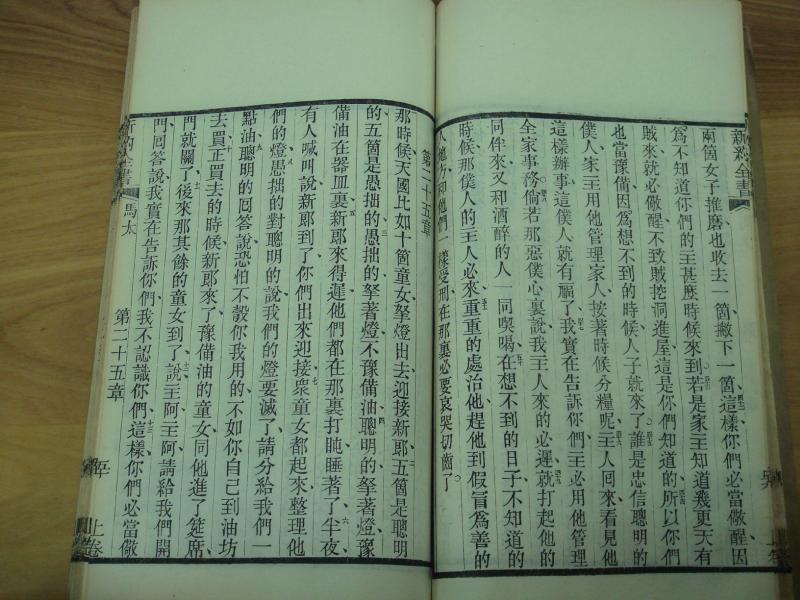 新約全書
兩箇女子推磨也收去一箇撇下一箇這樣你們必當儆醒因
為不知道你們的主甚麼時候來到若是家主知道幾更天有
賊來就必儆醒不致賊挖洞進屋這是你們知道的所以你們
也當豫備因為想不到的時候人子就來了誰是忠信聰明的
僕人家主用他管理家人按著時候分糧呢主人回來看見他
這樣辦事這僕人就有福了我實在告訴你們主必用他管理
全家事務倘若那惡僕心裏說我主人來的必遲就打起他的
同伴來又和酒醉的人一同喫喝在想不到的日子不知道的
時候那僕人的主人必來重重的處治他趕他到假冒為善的
人地方和他們一樣受刑在那裏必要哀哭切齒了
第二十五章
那時候天國比如十箇童女拏燈出去迎接新郎五箇是聰明
的五箇是愚拙的愚拙的拏著燈不豫備油聰明的拏著燈豫
備油在器皿裏新郎來得遲他們都在那裏打盹睡著了半夜
有人喊叫說新郎到了你們出來迎接眾童女都起來整理他
們的燈愚拙的對聰明的說我們的燈要滅了請分給我們一
點油聰明的回答說恐怕不彀你我用的不如你自己到油坊
去買正買去的時候新郎來了豫備油的童女同他進了筵席
門就關了後來那其餘的童女到了說主阿主阿請給我們開
門回答說我實在告訴你們我不認識你們這樣你們必當儆
新約全書 馬太 第二十五章 上卷